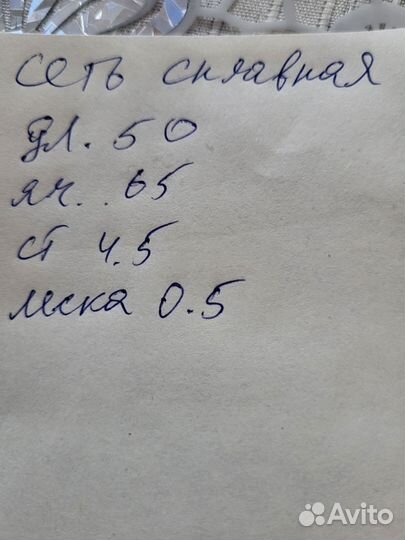 сеть сплавная
дл. 50
яч. . 65
ст 4.5
леска 0.5
Avito